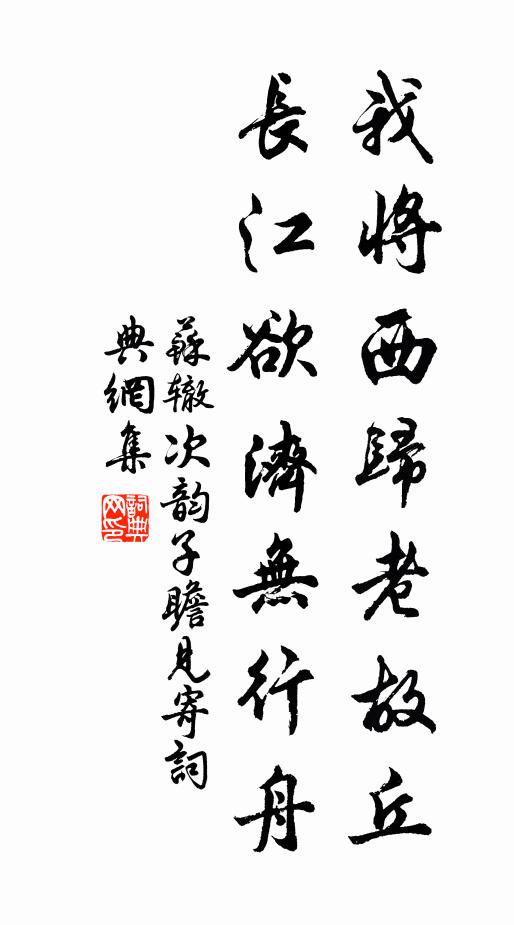 我將西歸老故丘
長江欲濟無行舟
蘇辙次韵子瞻見寄詞
典網集
詞典網印